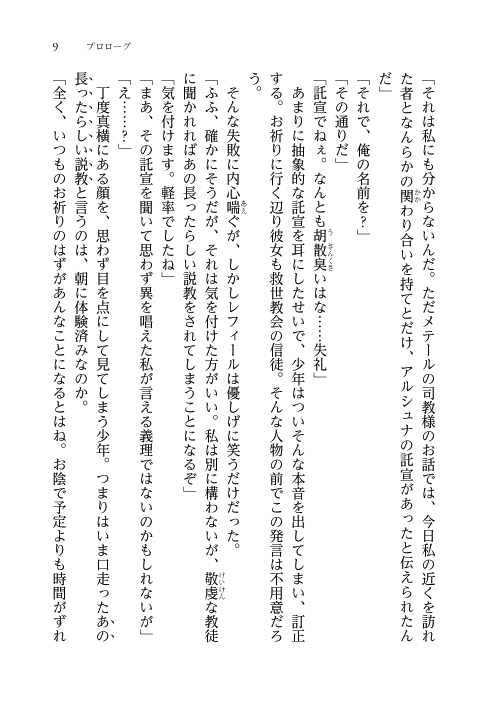 9　プロローグ
「それは私にも分からないんだ。ただメテールの司教様のお話では、今日私の近くを訪れ
た者となんらかの関わり合いを持てとだけ、アルシュナの託宣があったと伝えられたん
だ」
「それで、俺の名前を？」
「その通りだ」
「託宣でねぇ。なんとも胡散臭いはな……失礼」
　あまりに抽象的な託宣を耳にしたせいで、少年はついそんな本音を出してしまい、訂正
する。お祈りに行く辺り彼女も救世教会の信徒。そんな人物の前でこの発言は不用意だろ
う。
　そんな失敗に内心喘ぐが、しかしレフィールは優しげに笑うだけだった。
「ふふ、確かにそうだが、それは気を付けた方がいい。私は別に構わないが、敬虔な教徒
に聞かれればあの長ったらしい説教をされてしまうことになるぞ」
「気を付けます。軽率でしたね」
「まあ、その託宣を聞いて思わず異を唱えた私が言える義理ではないのかもしれないが」
「え……？」
　丁度真横にある顔を、思わず目を点にして見てしまう少年。つまりはいま口走ったあの
長ったらしい説教と言うのは、朝に体験済みなのか。
「全く、いつものお祈りのはずがあんなことになるとはね。お陰で予定よりも時間がずれ